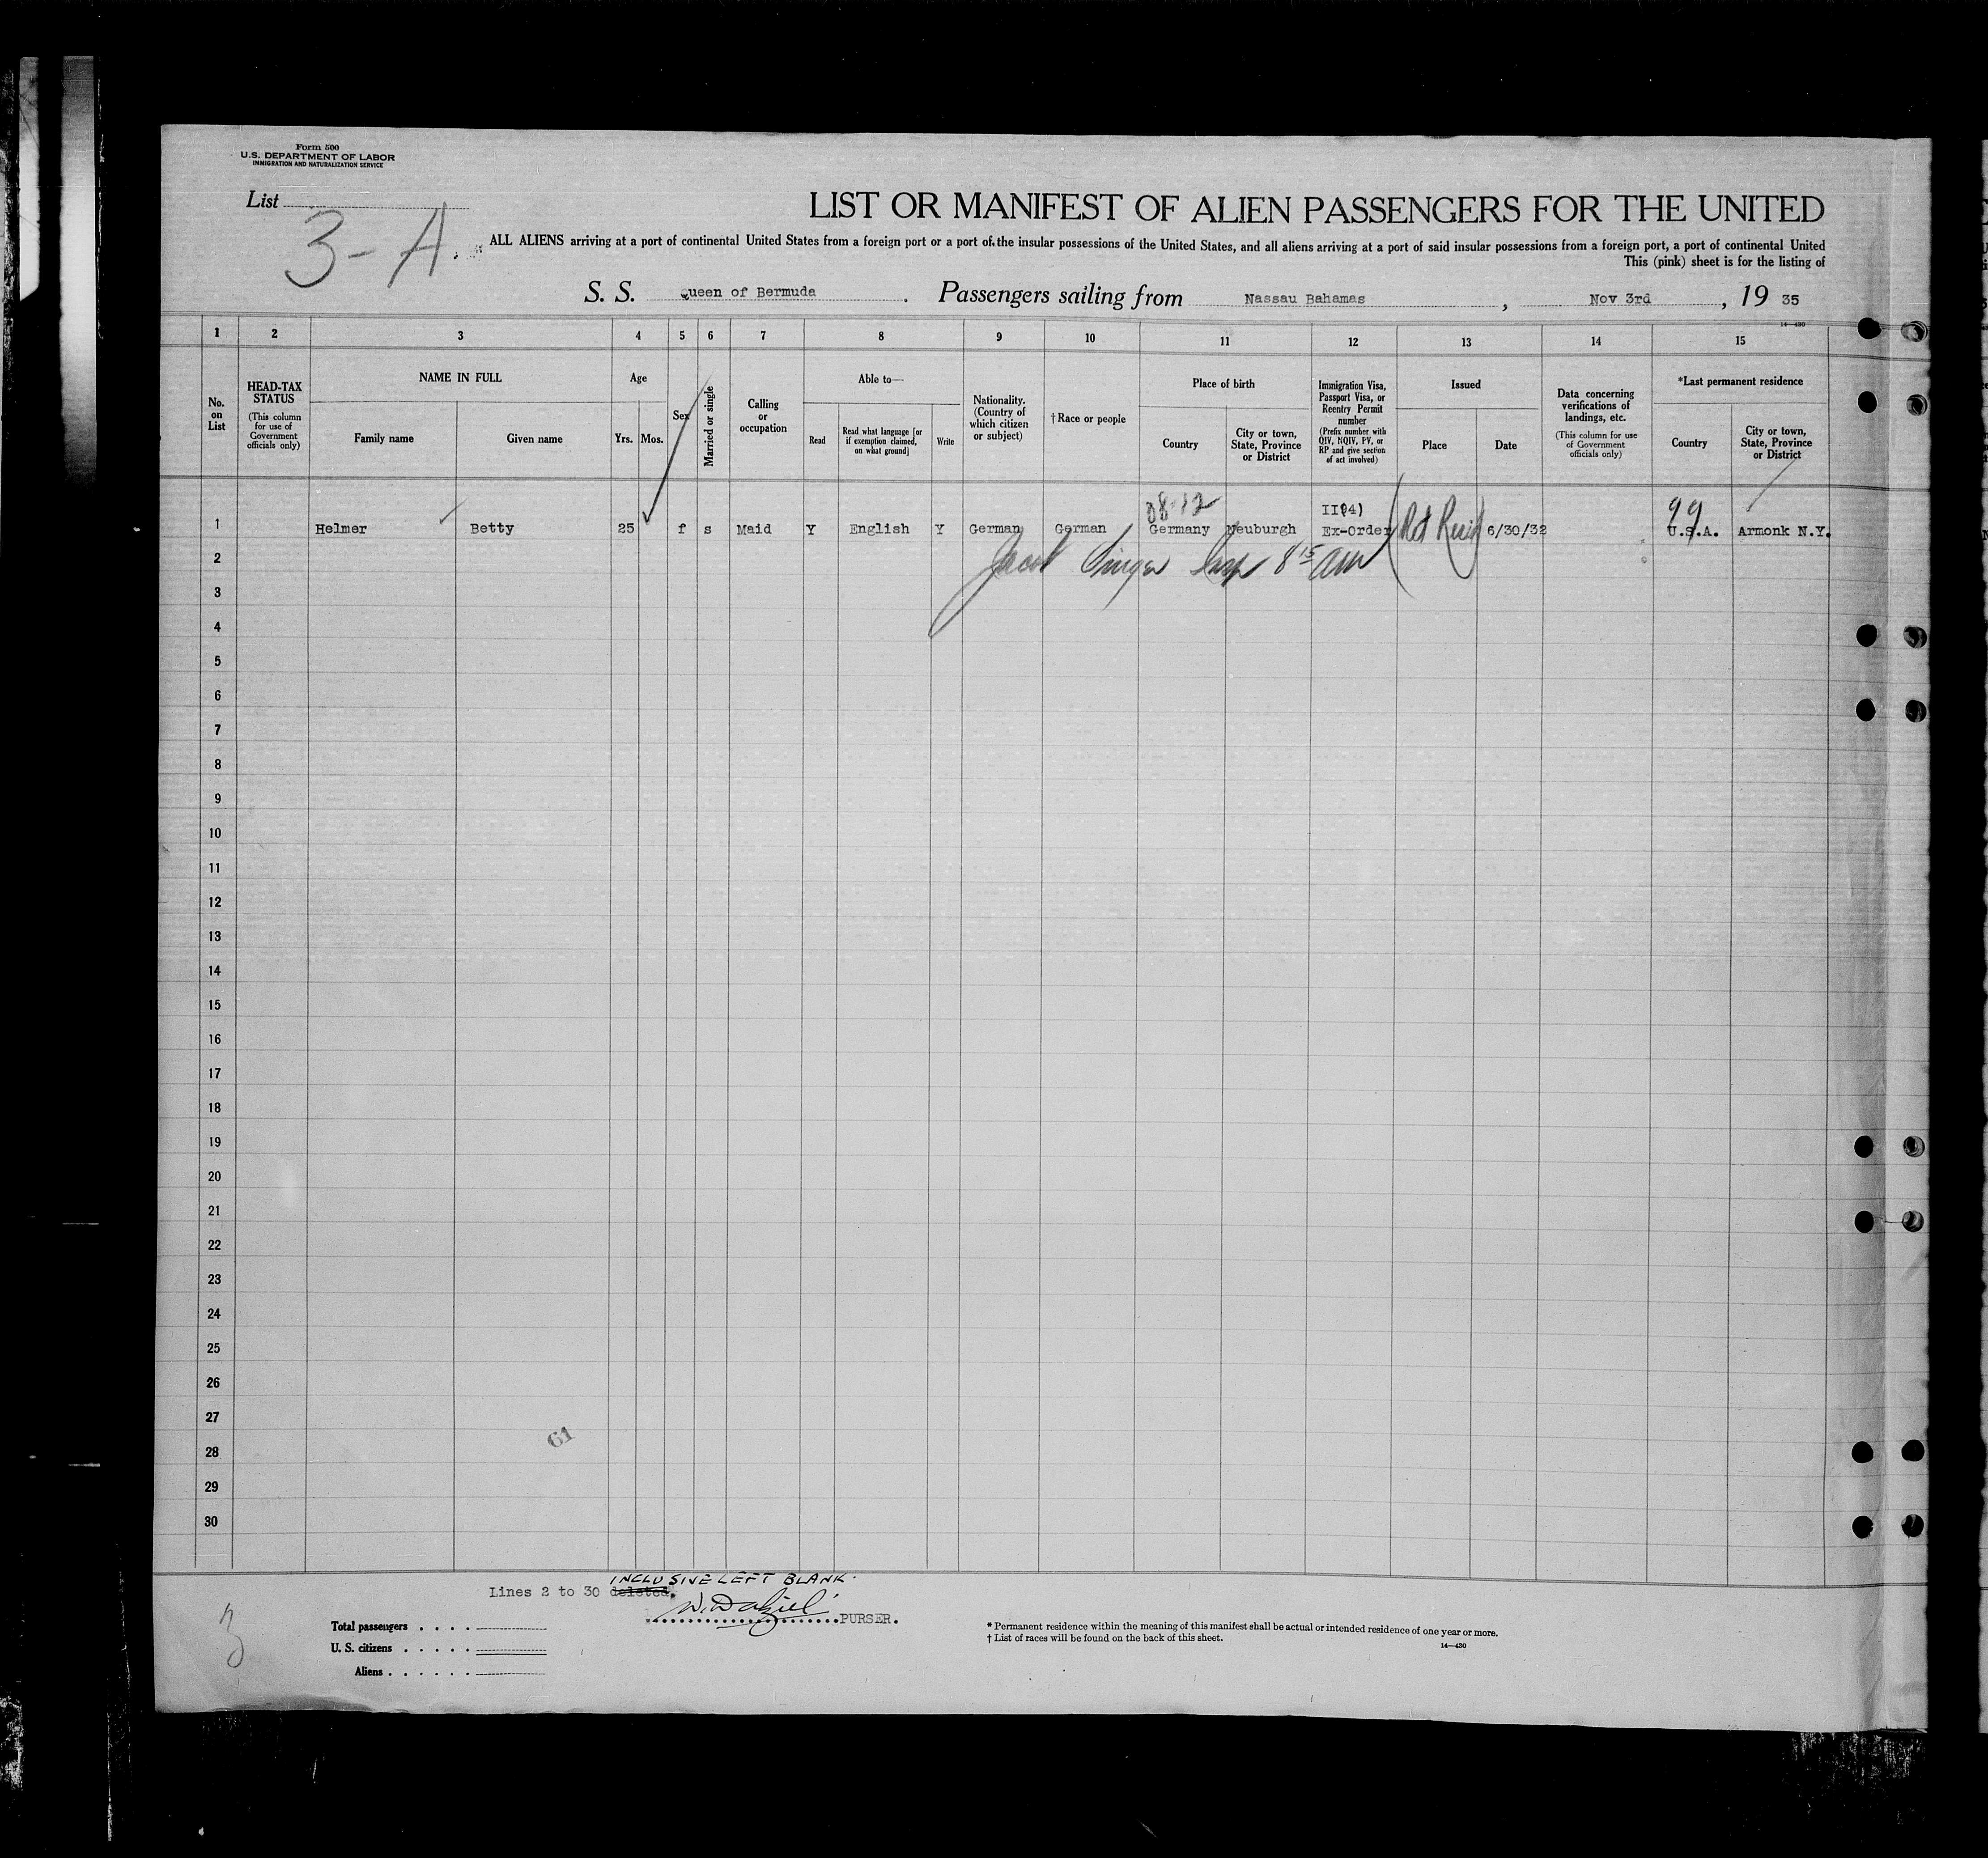 Form 500
U.S. DEPARTMENT OF LABOR
IMMIGRATION AND NATURALIZATION SERVICE
List
3-A.
LIST OR MANIFEST OF ALIEN PASSENGERS FOR THE UNITED
ALL ALIENS arriving at a port of continental United States from a foreign port or a port of the insular possessions of the United States, and all aliens arriving at a port of said insular possessions from a foreign port, a port of continental United
This (pink) sheet is for the listing of
S. S. Queen of Bermuda. Passengers sailing from Nassau Bahamas, Nov 3rd, 19 35
14—430
1 2 3 4 5 6 7 8 9 10 11 12 13 14 15
No. on List
HEAD-TAX STATUS
(This column for use of Government officials only)
NAME IN FULL
Family name Given name
Age
Yrs. Mos.
Sex
Married or single
Calling or occupation
Able to—
Read
Read what language [or if exemption claimed, on what ground]
Write
Nationality. (Country of which citizen or subject)
†Race or people
Place of birth
Country
City or town, State, Province or District
Immigration Visa, Passport Visa, or Reentry Permit number
(Prefix number with QIV, NQIV, PV, or RP and give section of act involved)
Issued
Place Date
Data concerning verifications of landings, etc.
(This column for use of Government officials only)
*Last permanent residence
Country
City or town, State, Province or District
08-12 II(4) 99
1 Helmer Betty 25 f s Maid Y English Y German German Germany Neuburgh Ex-Order (Ret Resid) 6/30/32 U.S.A. Armonk N.Y.
Jacob Singer Insp 8 15 AM
2
3
4
5
6
7
8
9
10
11
12
13
14
15
16
17
18
19
20
21
22
23
24
25
26
27
28
29
30
61
INCLUSIVE LEFT BLANK.
Lines 2 to 30 deleted.
W. Dalziel
PURSER.
3
Total passengers
U. S. citizens
Aliens
* Permanent residence within the meaning of this manifest shall be actual or intended residence of one year or more.
† List of races will be found on the back of this sheet.
14—430